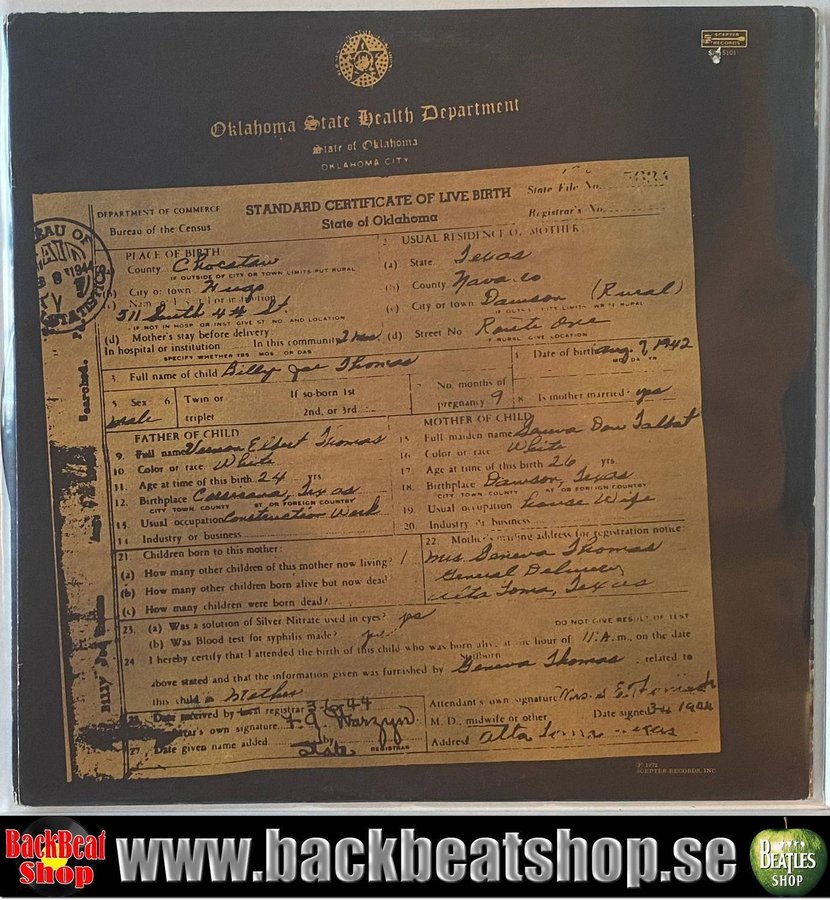 SCEPTER
RECORDS
Oklahoma State Health Department
State of Oklahoma
OKLAHOMA CITY
DEPARTMENT OF COMMERCE
Bureau of the Census
STANDARD CERTIFICATE OF LIVE BIRTH
State of Oklahoma
State File No.
Registrar's No.
PLACE OF BIRTH
County Choctaw
IF OUTSIDE OF CITY OR TOWN LIMITS PUT RURAL
City or town Hugo
511 South 4th St.
IF NOT IN HOSP OR INST GIVE ST NO. AND LOCATION
(d) Mother's stay before delivery:
In hospital or institution In this community
SPECIFY WHETHER YRS MOS OR DAS
2 USUAL RESIDENCE OF MOTHER
(a) State Texas
(b) County Navarro
(c) City or town Dawson (Rural)
(d) Street No Route One
IF RURAL GIVE LOCATION
3 Full name of child Billy Joe Thomas
Date of birth Aug. 7, 1942
5 Sex Male
6 Twin or triplet
If so-born 1st 2nd, or 3rd
7 No. months of pregnancy 9
8 Is mother married? yes
FATHER OF CHILD
9. Full name Vernon Elbert Thomas
10. Color or race White
11. Age at time of this birth 24 yrs
12. Birthplace Corsicana, Texas
CITY TOWN COUNTY ST OR FOREIGN COUNTRY
13. Usual occupation Construction Work
14. Industry or business
MOTHER OF CHILD
15 Full maiden name Geneva Talbot
16 Color or race White
17. Age at time of this birth 26 yrs
18. Birthplace Dawson, Texas
CITY TOWN COUNTY ST OR FOREIGN COUNTRY
19. Usual occupation House Wife
20. Industry or business
21 Children born to this mother:
(a) How many other children of this mother now living? 1
(b) How many other children born alive but now dead?
(c) How many children were born dead?
22. Mother's mailing address for registration notice:
Mrs. Geneva Thomas
General Delivery
Alta Loma, Texas
23. (a) Was a solution of Silver Nitrate used in eyes? yes
(b) Was Blood test for syphilis made? yes
DO NOT GIVE RESULT OF TEST
24 I hereby certify that I attended the birth of this child who was born alive at the hour of 11:A.m., on the date
Stillborn
above stated and that the information given was furnished by Geneva Thomas, related to
this child a Mother
Date received by local registrar 3-6-44
Attendant's own signature
M. D., midwife or other
Date signed
27 Date given name added by State REGISTRAR
Address Alta Loma Texas
Searched.
℗ 1972
SCEPTER RECORDS, INC.
BackBeat
Shop
www.backbeatshop.se
BEATLES
SHOP